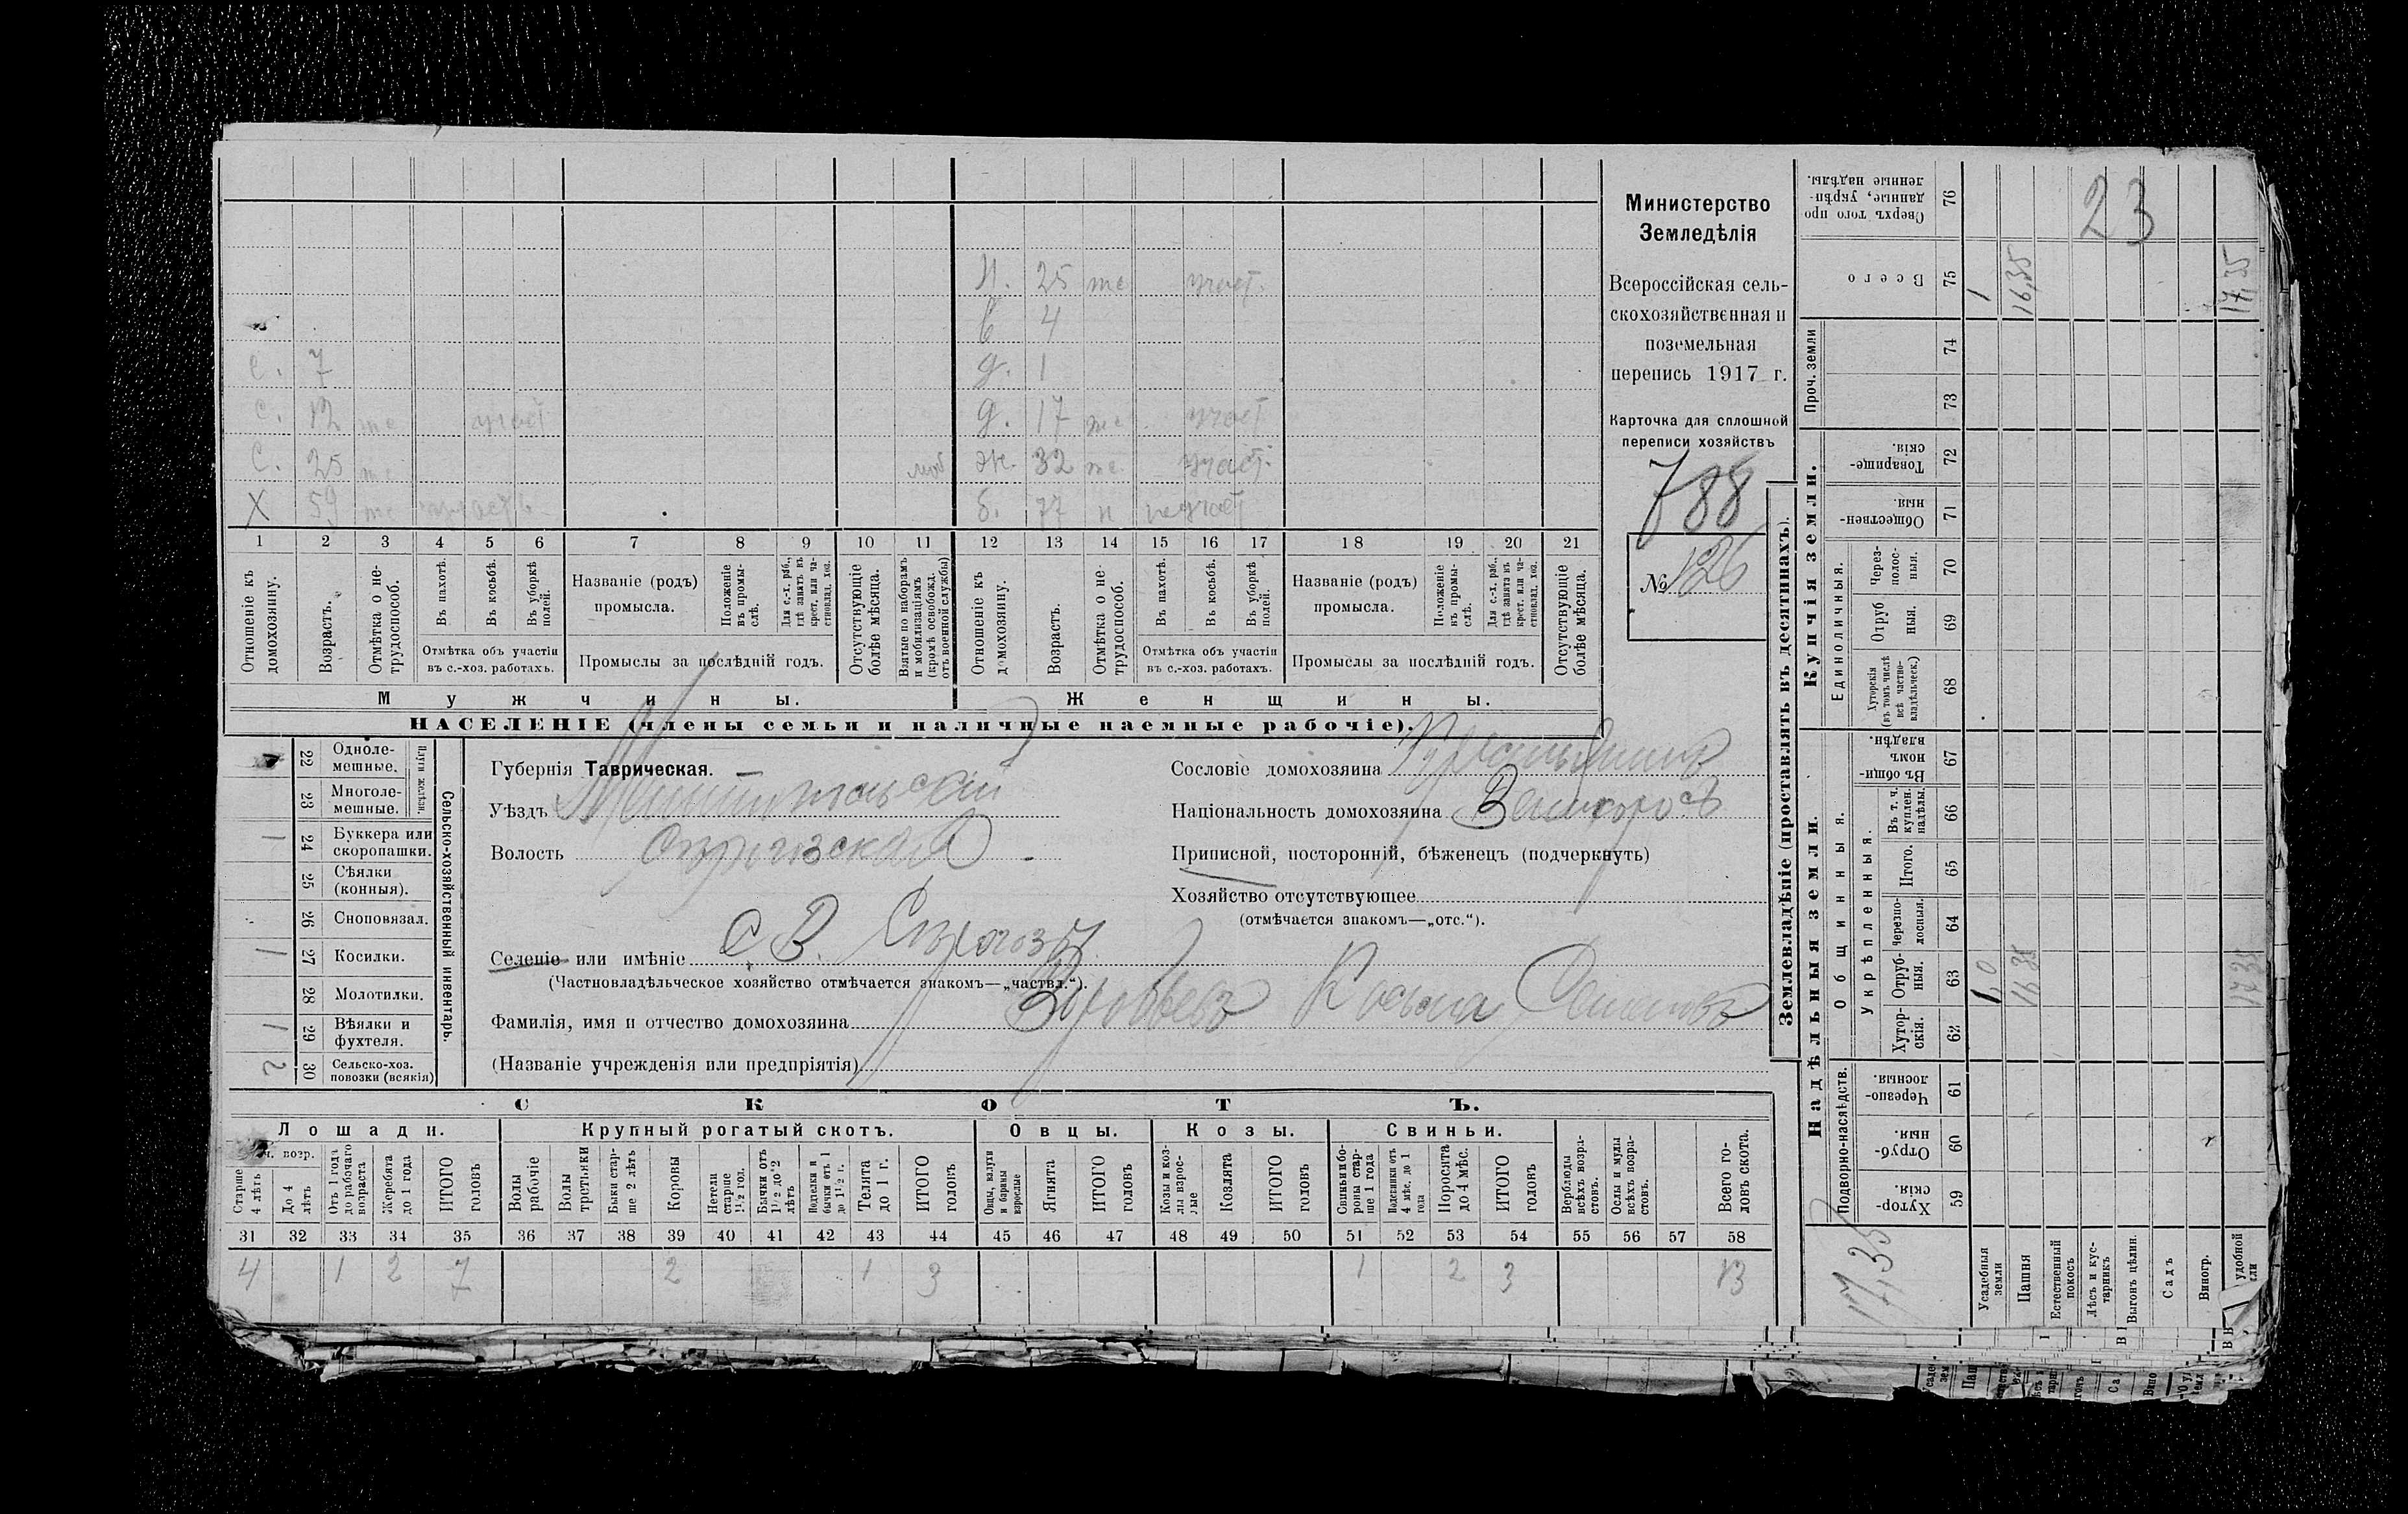 И. 25 те участ.
в 4
С. 7 д. 1
с. 12 те участ д. 17 те участ
С. 25 те моб ж. 32 те участ.
X 59 те участъ б. 77 н неучаст
1 2 3 4 5 6 7 8 9 10 11 12 13 14 15 16 17 18 19 20 21
Отношеніе къ домохозяину.
Возрастъ.
Отмѣтка о не-трудоспособ.
Въ пахотѣ.
Въ косьбѣ.
Въ уборкѣ полей.
Отмѣтка объ участіи
въ с.-хоз. работахъ.
Названіе (родъ)
промысла.
Положеніе въ промы-слѣ.
Для с.-х. раб., гдѣ занятъ въ крест. или ча-стновлад. хоз.
Промыслы за послѣдній годъ.
Отсутствующіе болѣе мѣсяца.
Взятые по наборамъ и мобилизаціямъ (кромѣ освобожд. отъ военной службы)
Отношеніе къ домохозяину.
Возрастъ.
Отмѣтка о не-трудоспособ.
Въ пахотѣ.
Въ косьбѣ.
Въ уборкѣ полей.
Отмѣтка объ участіи
въ с.-хоз. работахъ.
Названіе (родъ)
промысла.
Положеніе въ промы-слѣ.
Для с.-х. раб., гдѣ занята въ крест. или ча-стновлад. хоз.
Промыслы за послѣдній годъ.
Отсутствующіе болѣе мѣсяца.
Мужчины. Женщины.
НАСЕЛЕНІЕ (члены семьи и наличные наемные рабочіе).
Министерство
Земледѣлія
Всероссійская сель-
скохозяйственная и
поземельная
перепись 1917 г.
Карточка для сплошной
переписи хозяйствъ
788
№ 126
Сельско-хозяйственный инвентарь.
Плуги желѣзн.
22 Одноле-мешные.
23 Многоле-мешные.
1 24 Буккера или скоропашки.
25 Сѣялки (конныя).
26 Сноповязал.
1 27 Косилки.
28 Молотилки.
1 29 Вѣялки и фухтеля.
2 30 Сельско-хоз. повозки (всякія)
Губернія Таврическая.
Уѣздъ Мелитопольскій
Волость
Сословіе домохозяина Крестьянинъ
Національность домохозяина Великоросъ
Приписной, посторонній, бѣженецъ (подчеркнуть)
Хозяйство отсутствующее
(отмѣчается знакомъ—„отс.“).
Селеніе или имѣніе С В. Сѣрогозы
(Частновладѣльческое хозяйство отмѣчается знакомъ—„частвл.“).
Фамилія, имя и отчество домохозяина Воробьевъ Косьма Семеновъ
(Названіе учрежденія или предпріятія)
СКОТЪ.
Лошади. Крупный рогатый скотъ. Овцы. Козы. Свиньи.
Старше 4 лѣтъ
До 4 лѣтъ
Отъ 1 года до рабочаго возраста
Жеребята до 1 года
ИТОГО головъ
Волы рабочіе
Волы третьяки
Быки стар-ше 2 лѣтъ
Коровы
Нетели старше 1½ год.
Бычки отъ 1½ до 2 лѣтъ
Подтелки и бычки отъ 1 до 1½ г.
Телята до 1 г.
ИТОГО головъ
Овцы, валухи и бараны взрослые
Ягнята
ИТОГО головъ
Козы и коз-лы взрос-лые
Козлята
ИТОГО головъ
Свиньи и бо-ровы стар-ше 1 года
Подсвинки отъ 4 мѣс. до 1 года
Поросята до 4 мѣс.
ИТОГО головъ
Верблюды всѣхъ возра-стовъ.
Ослы и мулы всѣхъ возра-стовъ.
Всего го-ловъ скота.
31 32 33 34 35 36 37 38 39 40 41 42 43 44 45 46 47 48 49 50 51 52 53 54 55 56 57 58
4 1 2 7 2 1 3 1 2 3 13
Землевладѣніе (проставлять въ десятинахъ).
Купчія земли.
Надѣльныя земли.
Сверхъ того про-данные, укрѣп-ленные надѣлы. 76
23
Всего 75 1 16,35 17,35
Проч. земли 74 73
Товарище-скія. 72
Обществен-ныя. 71
Единоличныя.
Через-полос-ныя. 70
Отруб ныя. 69
Хуторскія (въ томъ числѣ всѣ частно-владѣльческ.) 68
Общинныя.
Въ общин-номъ владѣн. 67
Укрѣпленныя.
Въ т. ч. куплен. надѣлы. 66
Итого. 65
Черезпо-лосныя. 64
Отруб-ныя. 63 1,0 16 35 17 35
Хутор-скія. 62
Подворно-наслѣдств.
Черезпо-лосныя. 61
Отруб-ныя. 60
Хутор-скія. 59
17,35
Усадебныя земли
Пашня
Естественный покосъ
Лѣсъ и кус-тарникъ
Выгонъ цѣлин.
Садъ
Виногр.
удобной